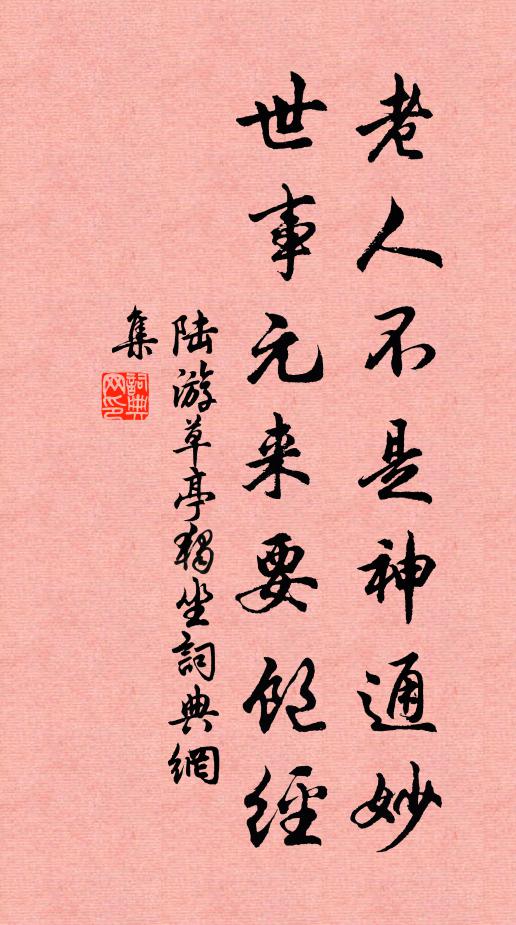 老人不是神通妙
世事元来要饱经
陆游草亭獨坐詞典網
集
詞典
网印